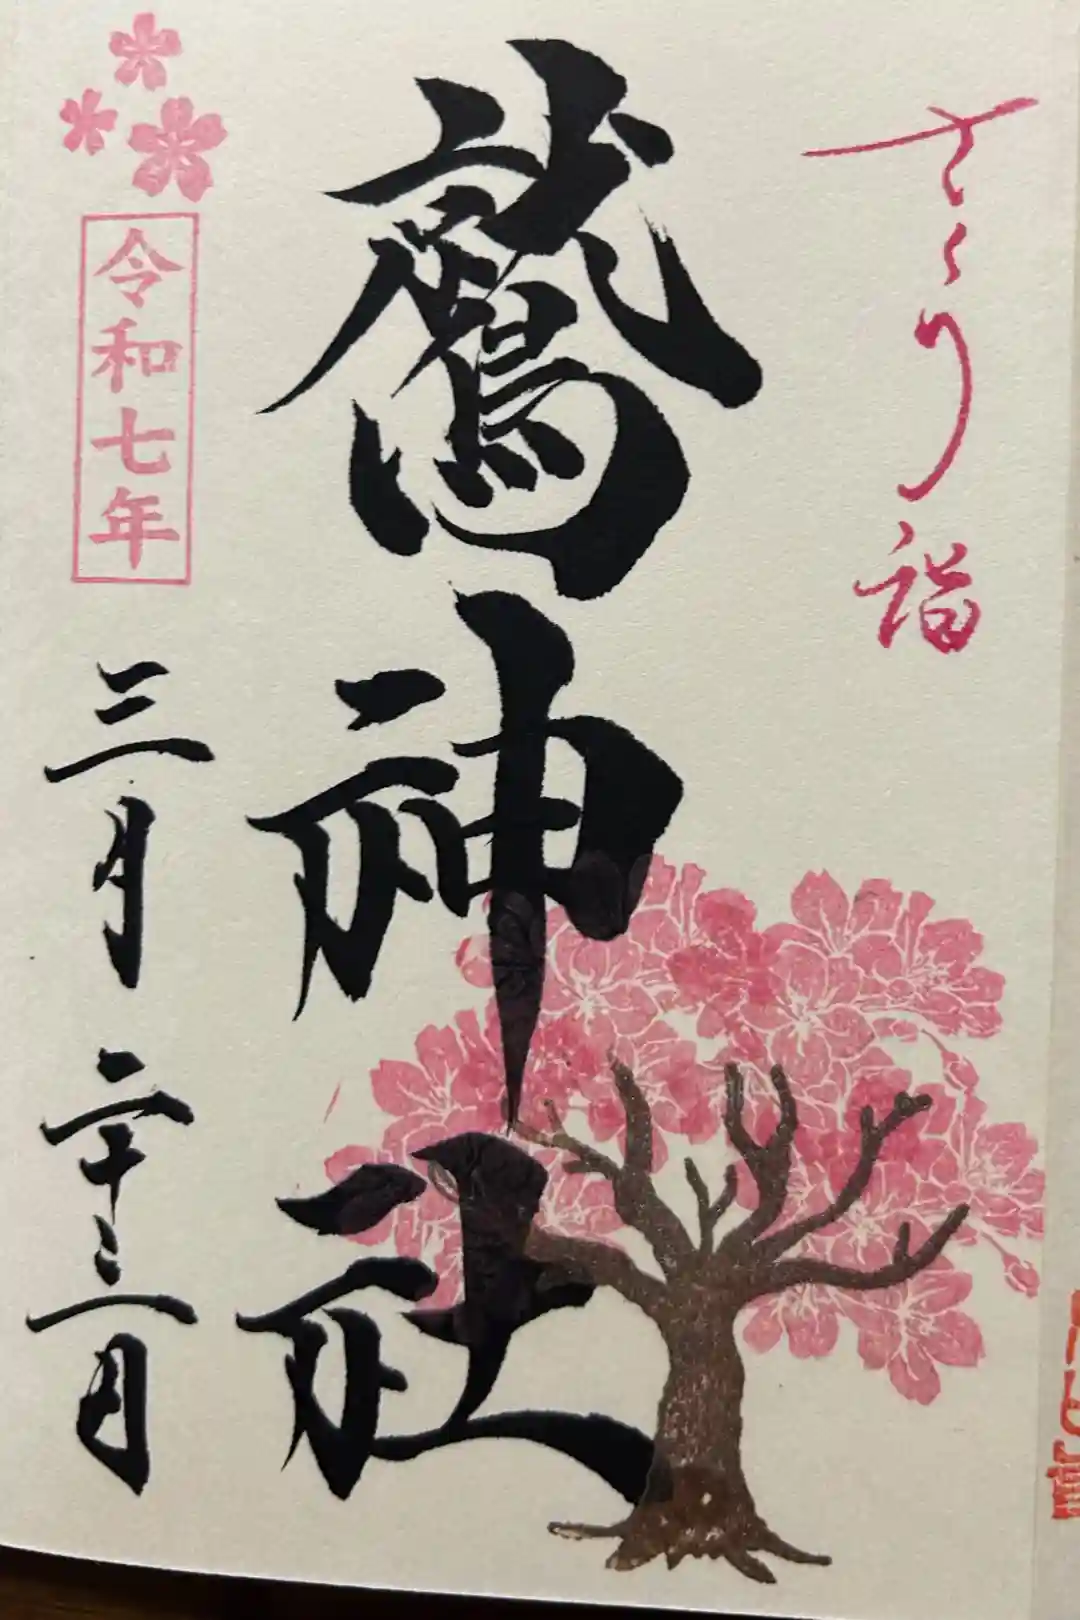 さくら詣
鷲神社
令和七年
三月二十三日